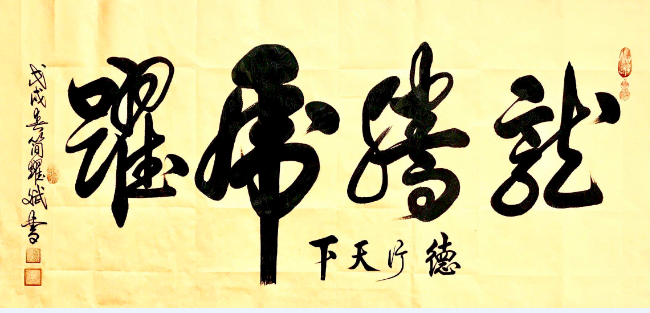 龍騰虎躍
德行天下
戊戌春简耀斌書